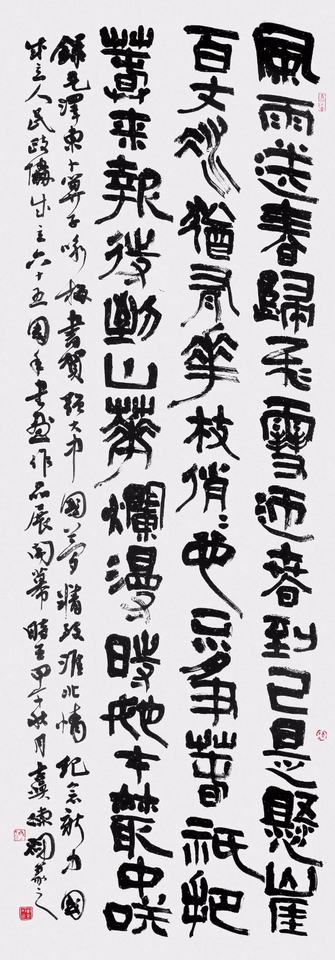 風雨送春歸飛雪迎春到已是懸崖
百丈冰猶有華枝俏〻也不爭春祇把
春來報待到山華爛漫時她在叢中咲
錄毛澤東卜算子咏梅書賀大中國夢情紀念國
成立人民政協成立六十五周年書畫作品展開幕時甲午秋月